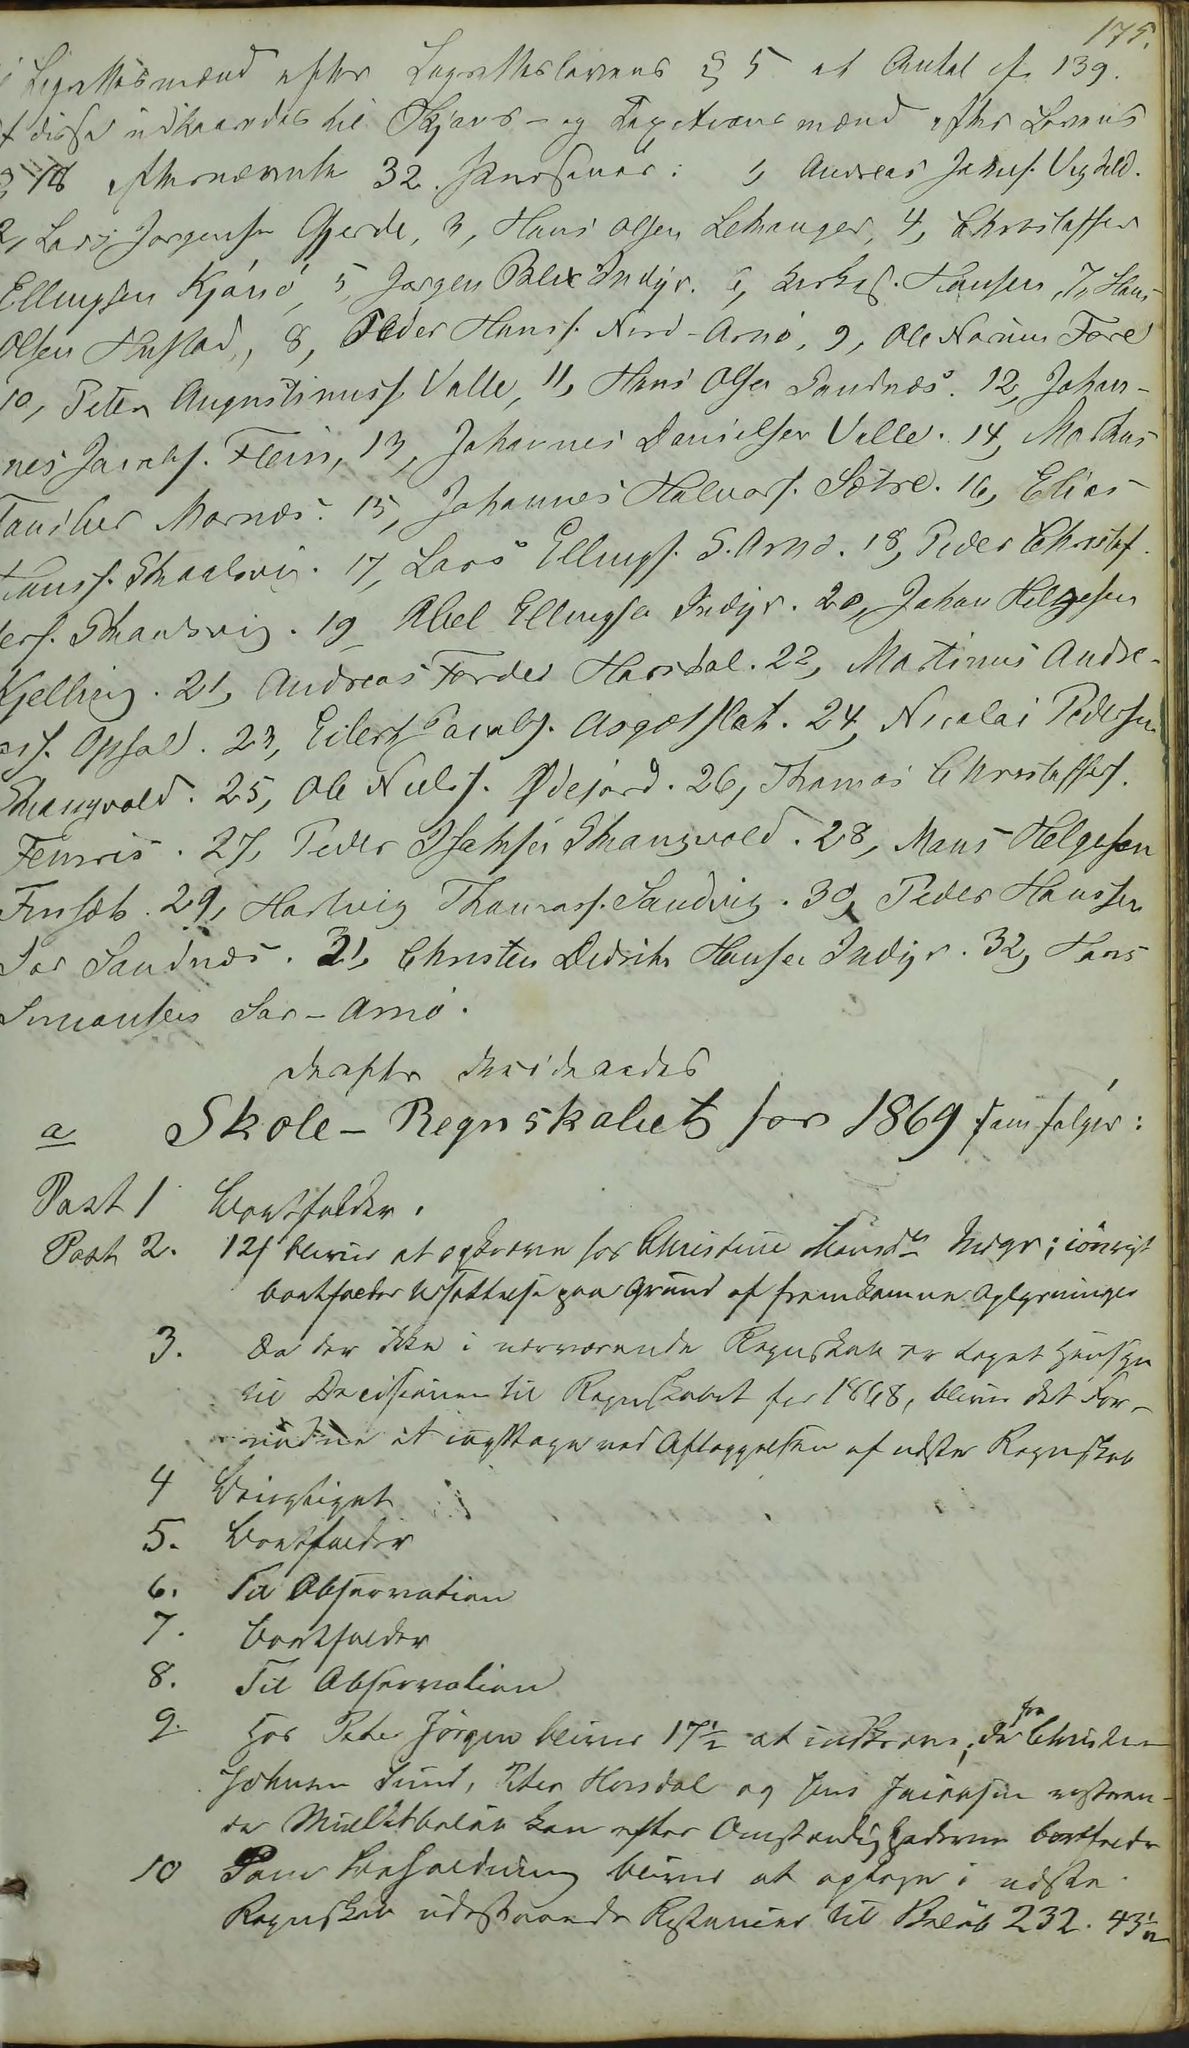 175.
Lagrettesmænd efter Lagretteslovens § 5 et Antal af 139.
disse udkaaredes til Skjøns- og Taxationsmænd efter Lovens
§ 16 efternævnte 32 Personer: 1, Andreas Jakobs. Vigdel.
2, Lars Jørgensen Gjerde, 3, Hans Olsen Lekanger, 4, Christoffer
Ellingsen Kjønø, 5, Jørgen Blix Indyr. 6, Kirkes. Hansen, 7, Hans
Olsen Hustad, 8, Peder Hanss. Nord-Arnø, 9, Ole Normn Fore
10, Peter Augustinuss. Valle, 11, Hans Olsen Sandnæs. 12, Johan-
nes Jacobs. Flein, 13, Johannes Danielsen Valle. 14, Mathias
Mornæs. 15, Johannes Halvors. Sætre. 16, Elias
Hanss. Skaalsvig. 17, Lars Ellings. S. Arnø. 18, Peder Christof-
fers. Skaalsvig. 19, Abel Ellingsen Indyr. 20, Johan Helgesen
Kjelling. 21, Andreas Forder Horsdal. 22, Martinus Andre-
ass. Opsal. 23, Eilert Jacobs. Aagotslet. 24, Nicolai Pedersen
Skaugvold. 25, Ole Niels. Ødejord. 26, Thomas Christoffers.
Femris. 27, Peder Isaksen Skaugvold. 28, Mons Helgesen
Finsæt. 29, Hartvig Thomass. Sandvig. 30, Peder Hanssen
Sør Sandnæs. 31, Christen Didrik Hansen Indyr. 32, Hans
Simonsen Sør-Arnø.
Derefter desideredes
a Skole-Regnskabet for 1869 som følger:
Post 1 Bortfalder.
Post 2. 12 s bliver at opkræve hos Christine Hansdtr Indyr; iøvrigt
bortfalder Udsættelse paa Grund af fremkomne Oplysninger
3. Da der ikke i nærværende Regnskab er taget Hensyn
til Decisionen til Regnskabet for 1868, bliver det For-
nødne at iagttage ved Aflæggelsen af næste Regnskab
4 Berigtiget
5. Bortfalder
6. Til Observation
7. Bortfalder
8. Til Observation
9. Hos Peter Jørgen bliver 17½ at indkræve; de fra Christen
Johnsen Sund, Peter Horsdal og Jens Jacobsen resteren-
de Mulktbeløb kan efter Omstændighederne bortfalde
10 Som Beholdning bliver at optage i næste
Regnskab udestaaende Restancer til Beløb 232. 43½